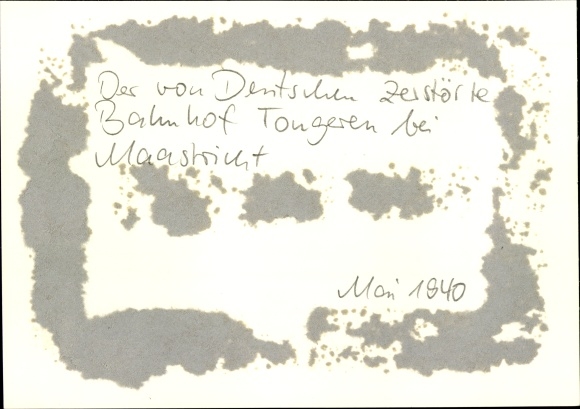 Der von Deutschen zerstörte
Bahnhof Tongeren bei
Maastricht
Mai 1940